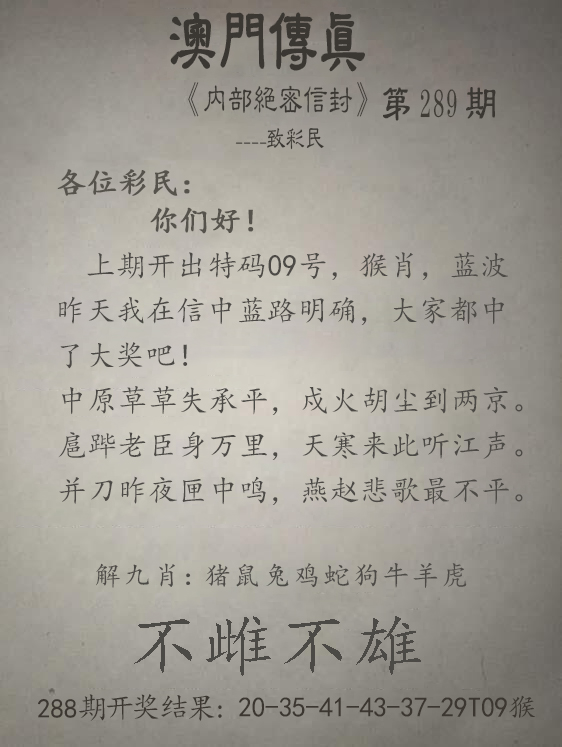 澳門傳眞
《內部絕密信封》第289期
----致彩民
各位彩民：
你们好！
上期开出特码09号，猴肖，蓝波
昨天我在信中蓝路明确，大家都中
了大奖吧！
中原草草失承平，戍火胡尘到两京。
扈跸老臣身万里，天寒来此听江声。
并刀昨夜匣中鸣，燕赵悲歌最不平。
解九肖：猪鼠兔鸡蛇狗牛羊虎
不雌不雄
288期开奖结果：20-35-41-43-37-29T09猴